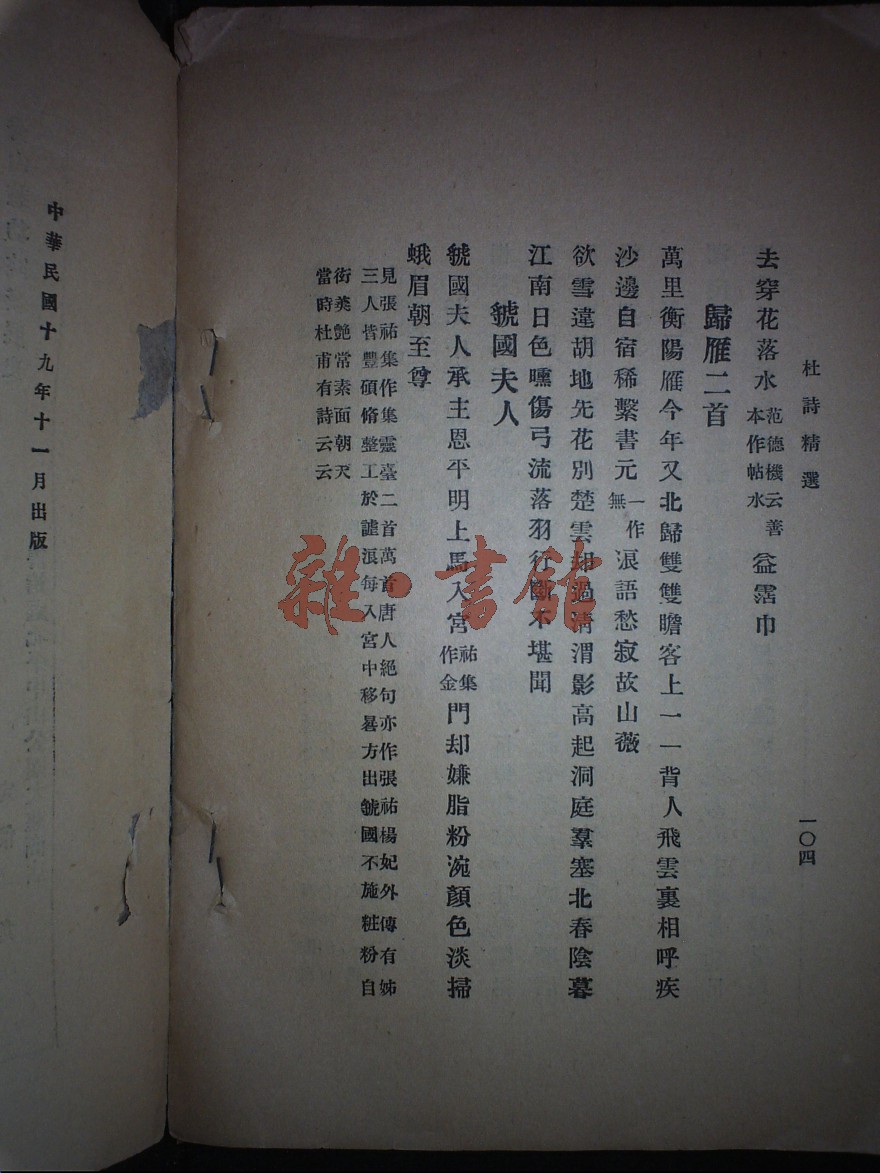 杜詩精選 一〇四
去穿花落水范德機云善本作帖水益霑巾
歸雁二首
萬里衡陽雁今年又北歸雙雙瞻客上一一背人飛雲裏相呼疾
沙邊自宿稀繫書元一作無浪語愁寂故山薇
欲雪違胡地先花別楚雲却過清渭影高起洞庭羣塞北春陰暮
江南日色曛傷弓流落羽行斷不堪聞
虢國夫人
虢國夫人承主恩平明上馬入宮祐集作金門却嫌脂粉涴顏色淡掃
蛾眉朝至尊
見張祐集作集靈臺二首萬首唐人絕句亦作張祐楊妃外傳有姊
三人皆豐碩脩整工於謔浪每入宮中移晷方出虢國不施粧粉自
衒美艷常素面朝天
當時杜甫有詩云云
中華民國十九年十一月出版
雜·書館